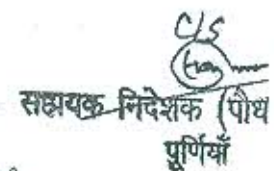 C/S
सहायक निदेशक (पौध
पूर्णियाँ